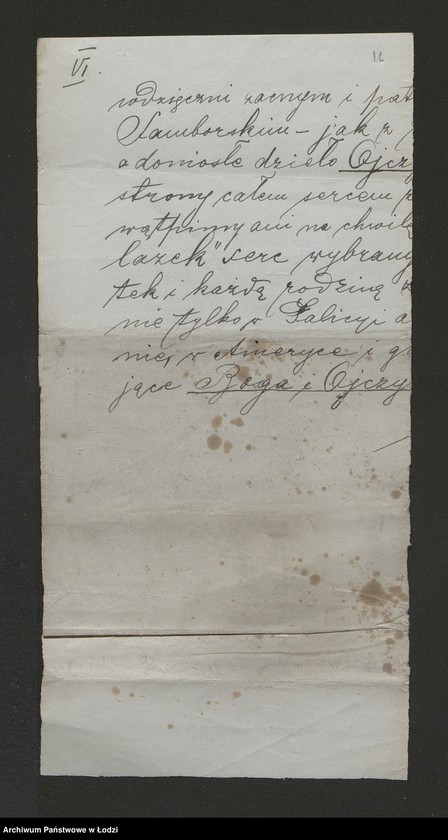 VI.
12
wdzięczni zacnym i pat
Samborskim – jak z
a doniosłe dzieło Ojcz
strony całem sercem
wątpimy ani na chwilę
lazek" serc wybrany
tek i każdą rodzinę
nie tylko w Galicyi a
nie, w Ameryce i g
jące Boga i Ojczy
Archiwum Państwowe w Łodzi